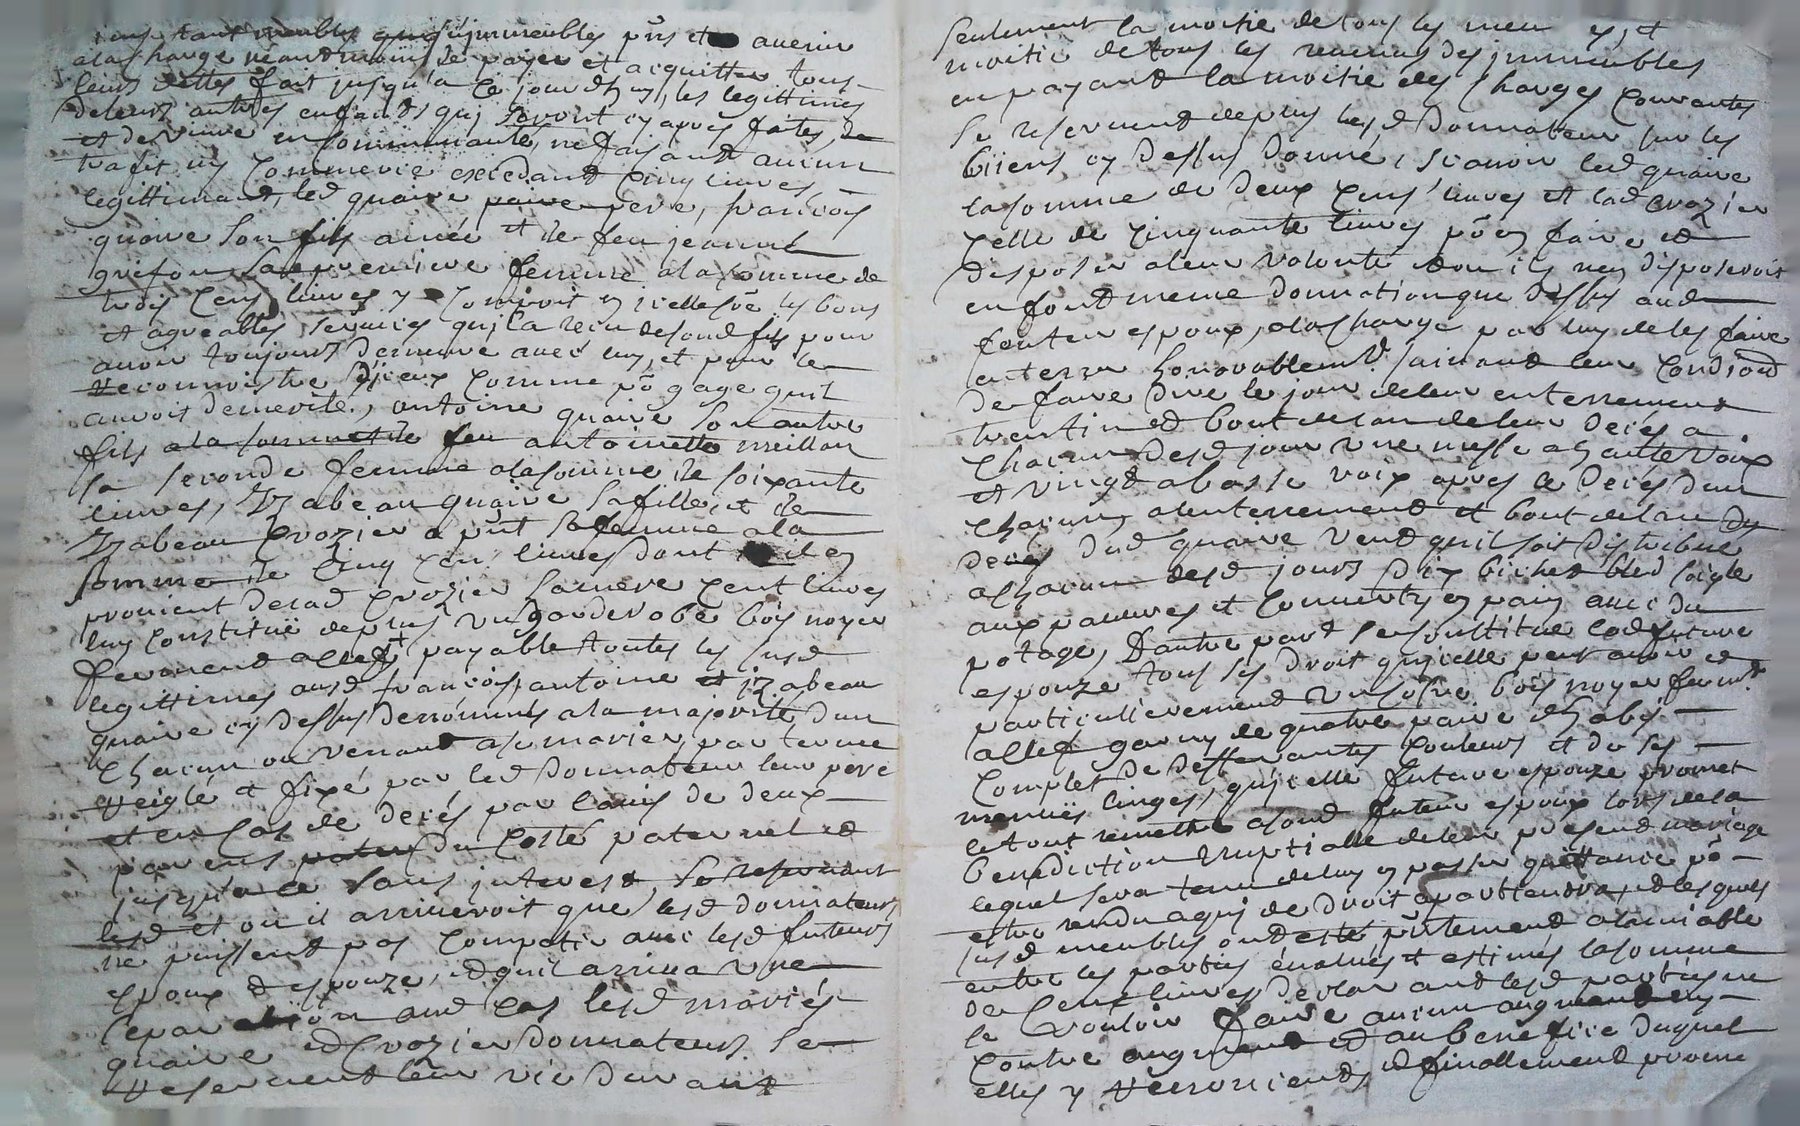 tant meubles qu'ymmeubles pñs et avenir
a la charge néantmoins de payer et acquitter tous
leurs dettes fait jusqu'a ce jourdhuy, les legittimes
de leurs autres enfants qui seront cy apres faites, de
et de vivre en communauté, ne faisant aucun
trafit ny commerce excedant cinq livres,
legittimant, led quaire paire pere, francois
quaire son fils ainé et de feu jeanne
grifon sa premiere femme a la somme de
trois cens livres y compris les bons
et agreables services qu'il a receu de sond fils pour
avoir toujours demeuré avec luy, et pour le
recounoistre d'iceux comme pō gage quil
auroit demerité, antoine quaire son autre
fils a la somme de feu antoinette meillan
sa seconde femme a la somme de soixante
livres, Yzabeau quaire sa fille, et de
Yzabeau Crozier a pñt sa femme a la
somme de cinq cens livres dont il en
provient de lad Crozier sa mere cent livres
luy constitué de plus un garderobe bois noyer
fermant a clef + payable toutes les susd
legittimes ausd francois, antoine et yzabeau
quaire cy dessus denommés a la majorité d'un
chacun ou venant a se marier, par terme
reiglé et fixé par led donnateur leur pere
et en cas de decés par l'avis de deux
parens pater du costé paternel et
jusqu'a ce sans interest, se reservant
lesd et ou il arriveroit que lesd donnateurs
ne puissent pas compatir avec lesd futeurs
epoux et espouze, et qu'il arriva une
separation aud cas lesd mariés
quaire et Crozier donnateurs se
reservent leur vie durant
seulement la moitie de tous les meu et
moitié de tous les revenus des jmmeubles
en payant la moitié des charges courantes
se reservent de plus lesd donnateurs sur les
biiens cy dessus donné, scavoir led quaire
la somme de deux cens livres et lad Crozier
celle de cinquante livres pō en faire et
disposer a leur volonté dou ils n'en disposeroit
en font meme donnation que dessus aud
feuteur espoux, a la charge par luy de les faire
enterrer honorablemt suivant leur condiond
de faire dire le jour de leur enterrement
trantin et bout de lan de leur decés a
chacun desd jour une messe a haulte voix
et vingt a basse voix apres le decés d'un
chacun a l'enterrement et bout de lan du
decés dud quaire veut qu'il soit distribue
a chacun desd jours dix bichet bled soigle
aux pauvres et convertys en pain avec du
potage, D'autre part se constitue lad future
espouze tous ses droit qu'icelle peut avoir et
particulierement un cofre bois noyer fermt
a clef garny de quatre paire d'habis
complet de differantes couleurs et de ses
menües linges, qu'icelle future espouze promet
le tout remettre a sond futeur espoux lors de la
benediction nuptialle de leur present mariage
lequel sera tenu de luy en passer quittance pō
estre rendu a qui de droit apartiendra, et lesquels
susd meubles ont esté pñtement a l'amiable
entre les parties évalués et estimés la somme
de cent livres, declarant lesd parties ne
se vouloir faire aucun augment ny
contre augment et au benefice duquel
elles y renoncient, et finallement promet